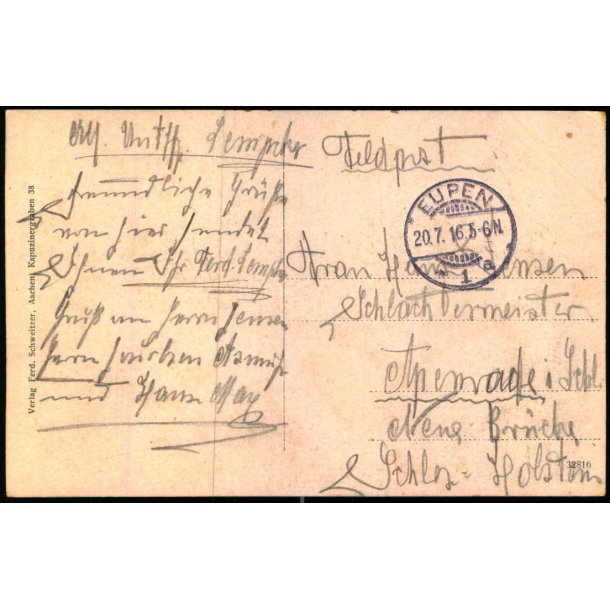 Verlag Ferd. Schweitzer, Aachen, Kapuzinergraben 38
Untffz. Lempcke
freundliche Grüße
von hier sendet
Ihnen Ihr Ferd. Lempcke
Gruß an Herrn Jensen
Herrn
und Hans May
Feldpost
EUPEN
20.7.16.5-6N.
1 a
Frau Jensen
Schlachtermeister
Apenrade i. Schl
Neue Brücke
Schles-Holstein
32816